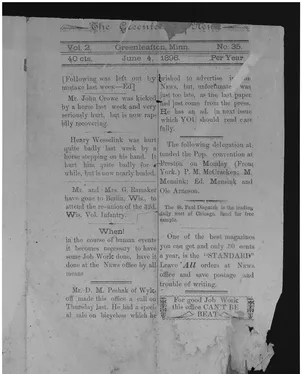 The Greenleafton News
Vol 2. Greenleafton, Minn. No. 35.
40 cts. June 4, 1896. Per Year.
[Following was left out by
week—Ed]
Mr. John Crowe was kicked
by a horse last week and very
seriously hurt, but is now rap
idly recovering.
Henry Wesselink was hurt
quite badly last week by a
horse stepping on his hand. It
hurt him quite badly for a
while, but is now nearly healed.
Mr. and Mrs. G. Ramaker
have gone to Berlin, Wis., to
attend the re-union of the 32d.
Wis. Vol. Infantry.
When!
in the course of human events
it becomes necessary to have
some Job Work done, have it
done at the News office by all
means
Mr. D. M. Pechak of Wyk-
off made this office a call on
Thursday last. He had a speci
al sale on bicycles which he
wished to advertise in the
News, but unfortunate was
just too late, as the last paper
had just come from the press.
He has an ad. in next issue
which YOU should read care
fully.
The following delegation at
tended the Pop. convention at
Preston on Monday (From
York.) P. M. McCracken, M.
Mensink, Ed. Mensink and
Ole Arneson.
The St. Paul Dispatch is the leading
daily west of Chicago. Send for free
sample.
One of the best magazines
you can get and only 20 cents
a year, is the "STANDARD"
Leave All orders at News
office and save postage and
trouble of writing.
For good Job Work
this office CAN'T BE
BEAT